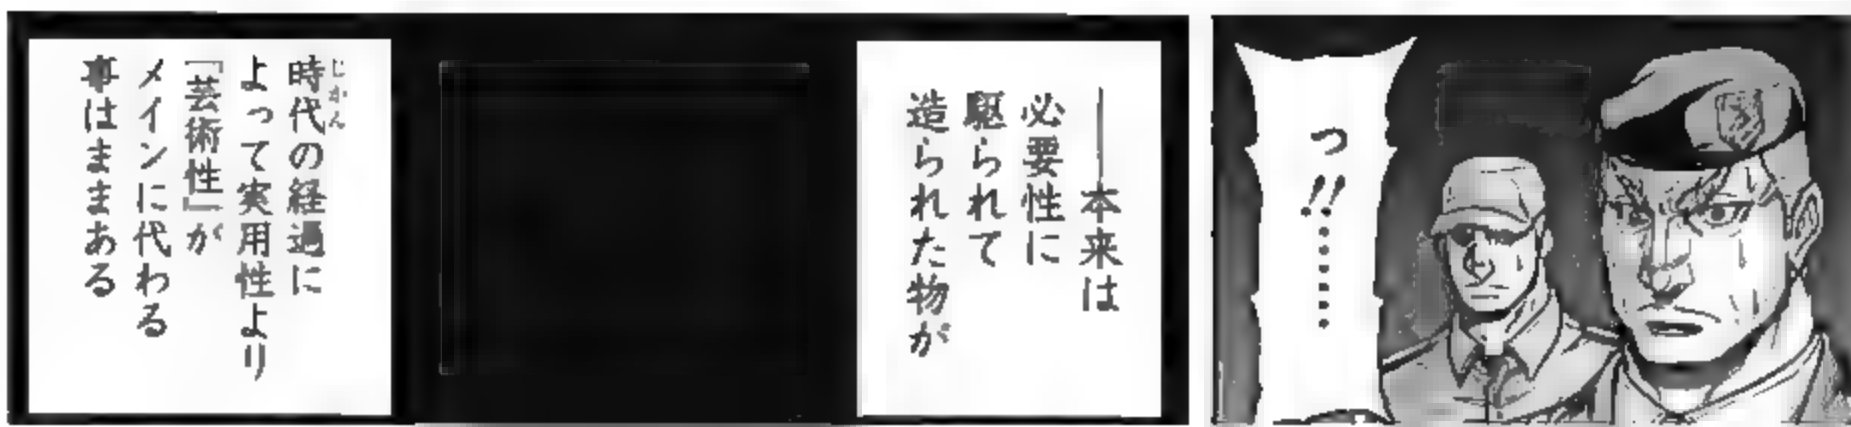 っ!!……
――本来は
必要性に
駆られて
造られた物が
時代の経過に
じかん
よって実用性より
「芸術性」が
メインに代わる
事はままある